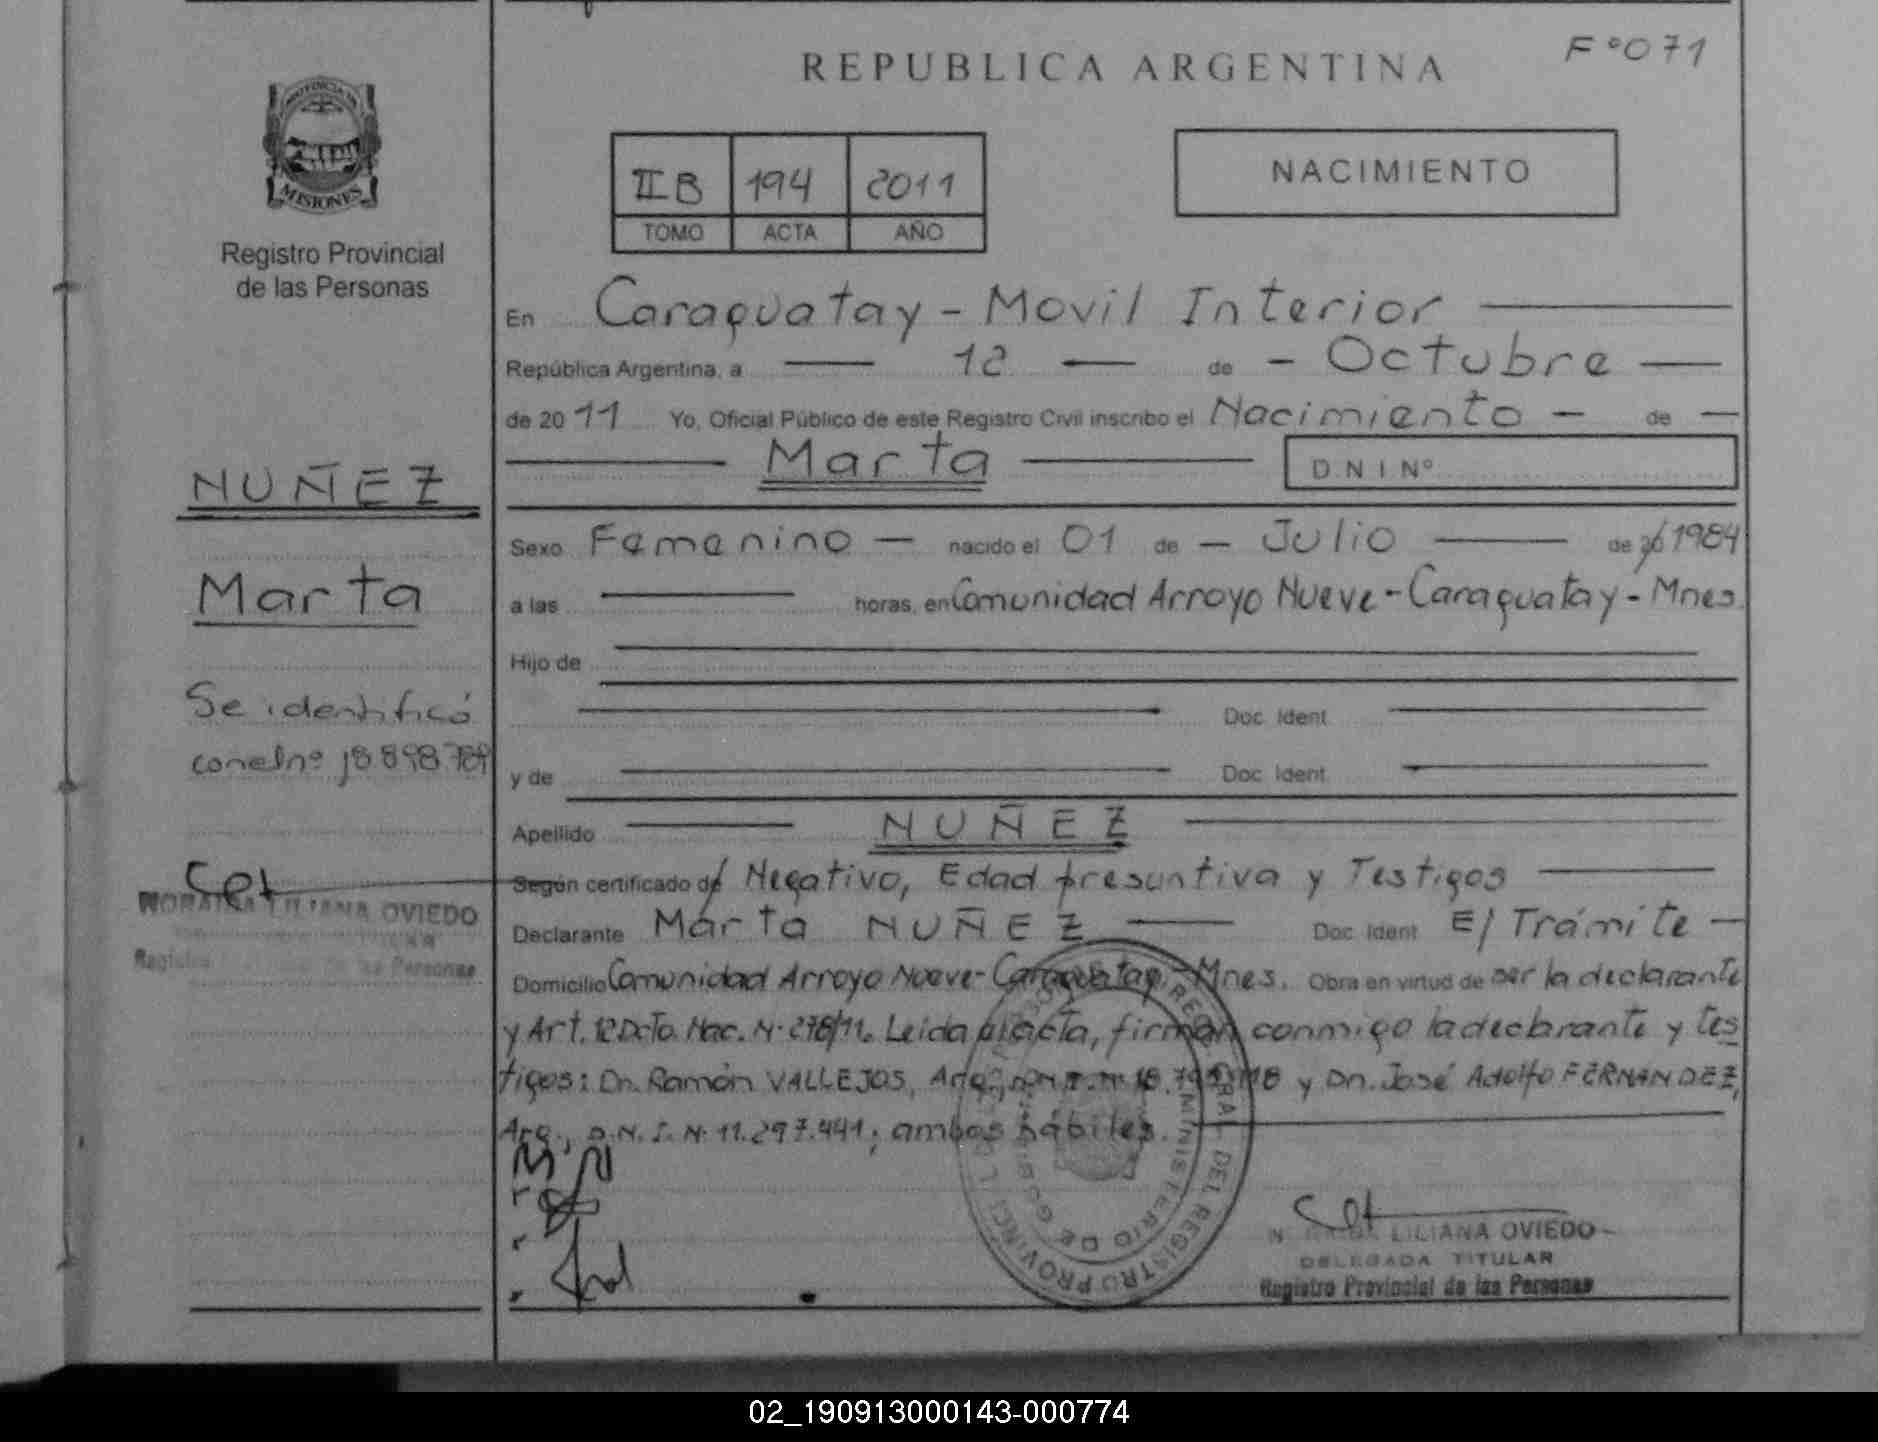 F°071
REPUBLICA ARGENTINA
MISIONES
Registro Provincial
de las Personas
II B 194 2011
TOMO ACTA AÑO
NACIMIENTO
En Caraguatay - Movil Interior
República Argentina, a 12 de - Octubre
de 20 11 Yo, Oficial Público de este Registro Civil inscribo el Nacimiento - de
Marta
D.N.I.Nº
NUÑEZ
Marta
Se identificó
con el nº 18 898 789
Sexo Femenino - nacido el 01 de - Julio de 20 1984
a las horas, en Comunidad Arroyo Nueve - Caraguatay - Mnes.
Hijo de
Doc. Ident.
y de Doc. Ident.
Apellido NUÑEZ
Según certificado de Negativo, Edad presuntiva y Testigos
Declarante Marta NUÑEZ Doc. Ident. E/ Trámite -
Domicilio Comunidad Arroyo Nueve - Caraguatay - Mnes. Obra en virtud de ser la declarante
y Art. 12 Dcto. Nac. N· 278/11. Leida el acta, firman conmigo la declarante y tes
tigos: Dn. Ramón VALLEJOS, Arg., D.N.I. N· 18. y Dn. José Adolfo FERNANDEZ,
Arg., D.N.I. N· 11.297.441; ambos hábiles.
LILIANA OVIEDO
Registro de las Personas
REG. GRAL. DEL REGISTRO PROVINCIAL
MINISTERIO DE
LILIANA OVIEDO
DELEGADA TITULAR
Registro Provincial de las Personas
02_190913000143-000774